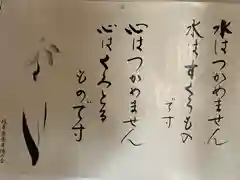 水はつかめません
水はすくうもの
です
心はつかめません
心はくみとる
ものです